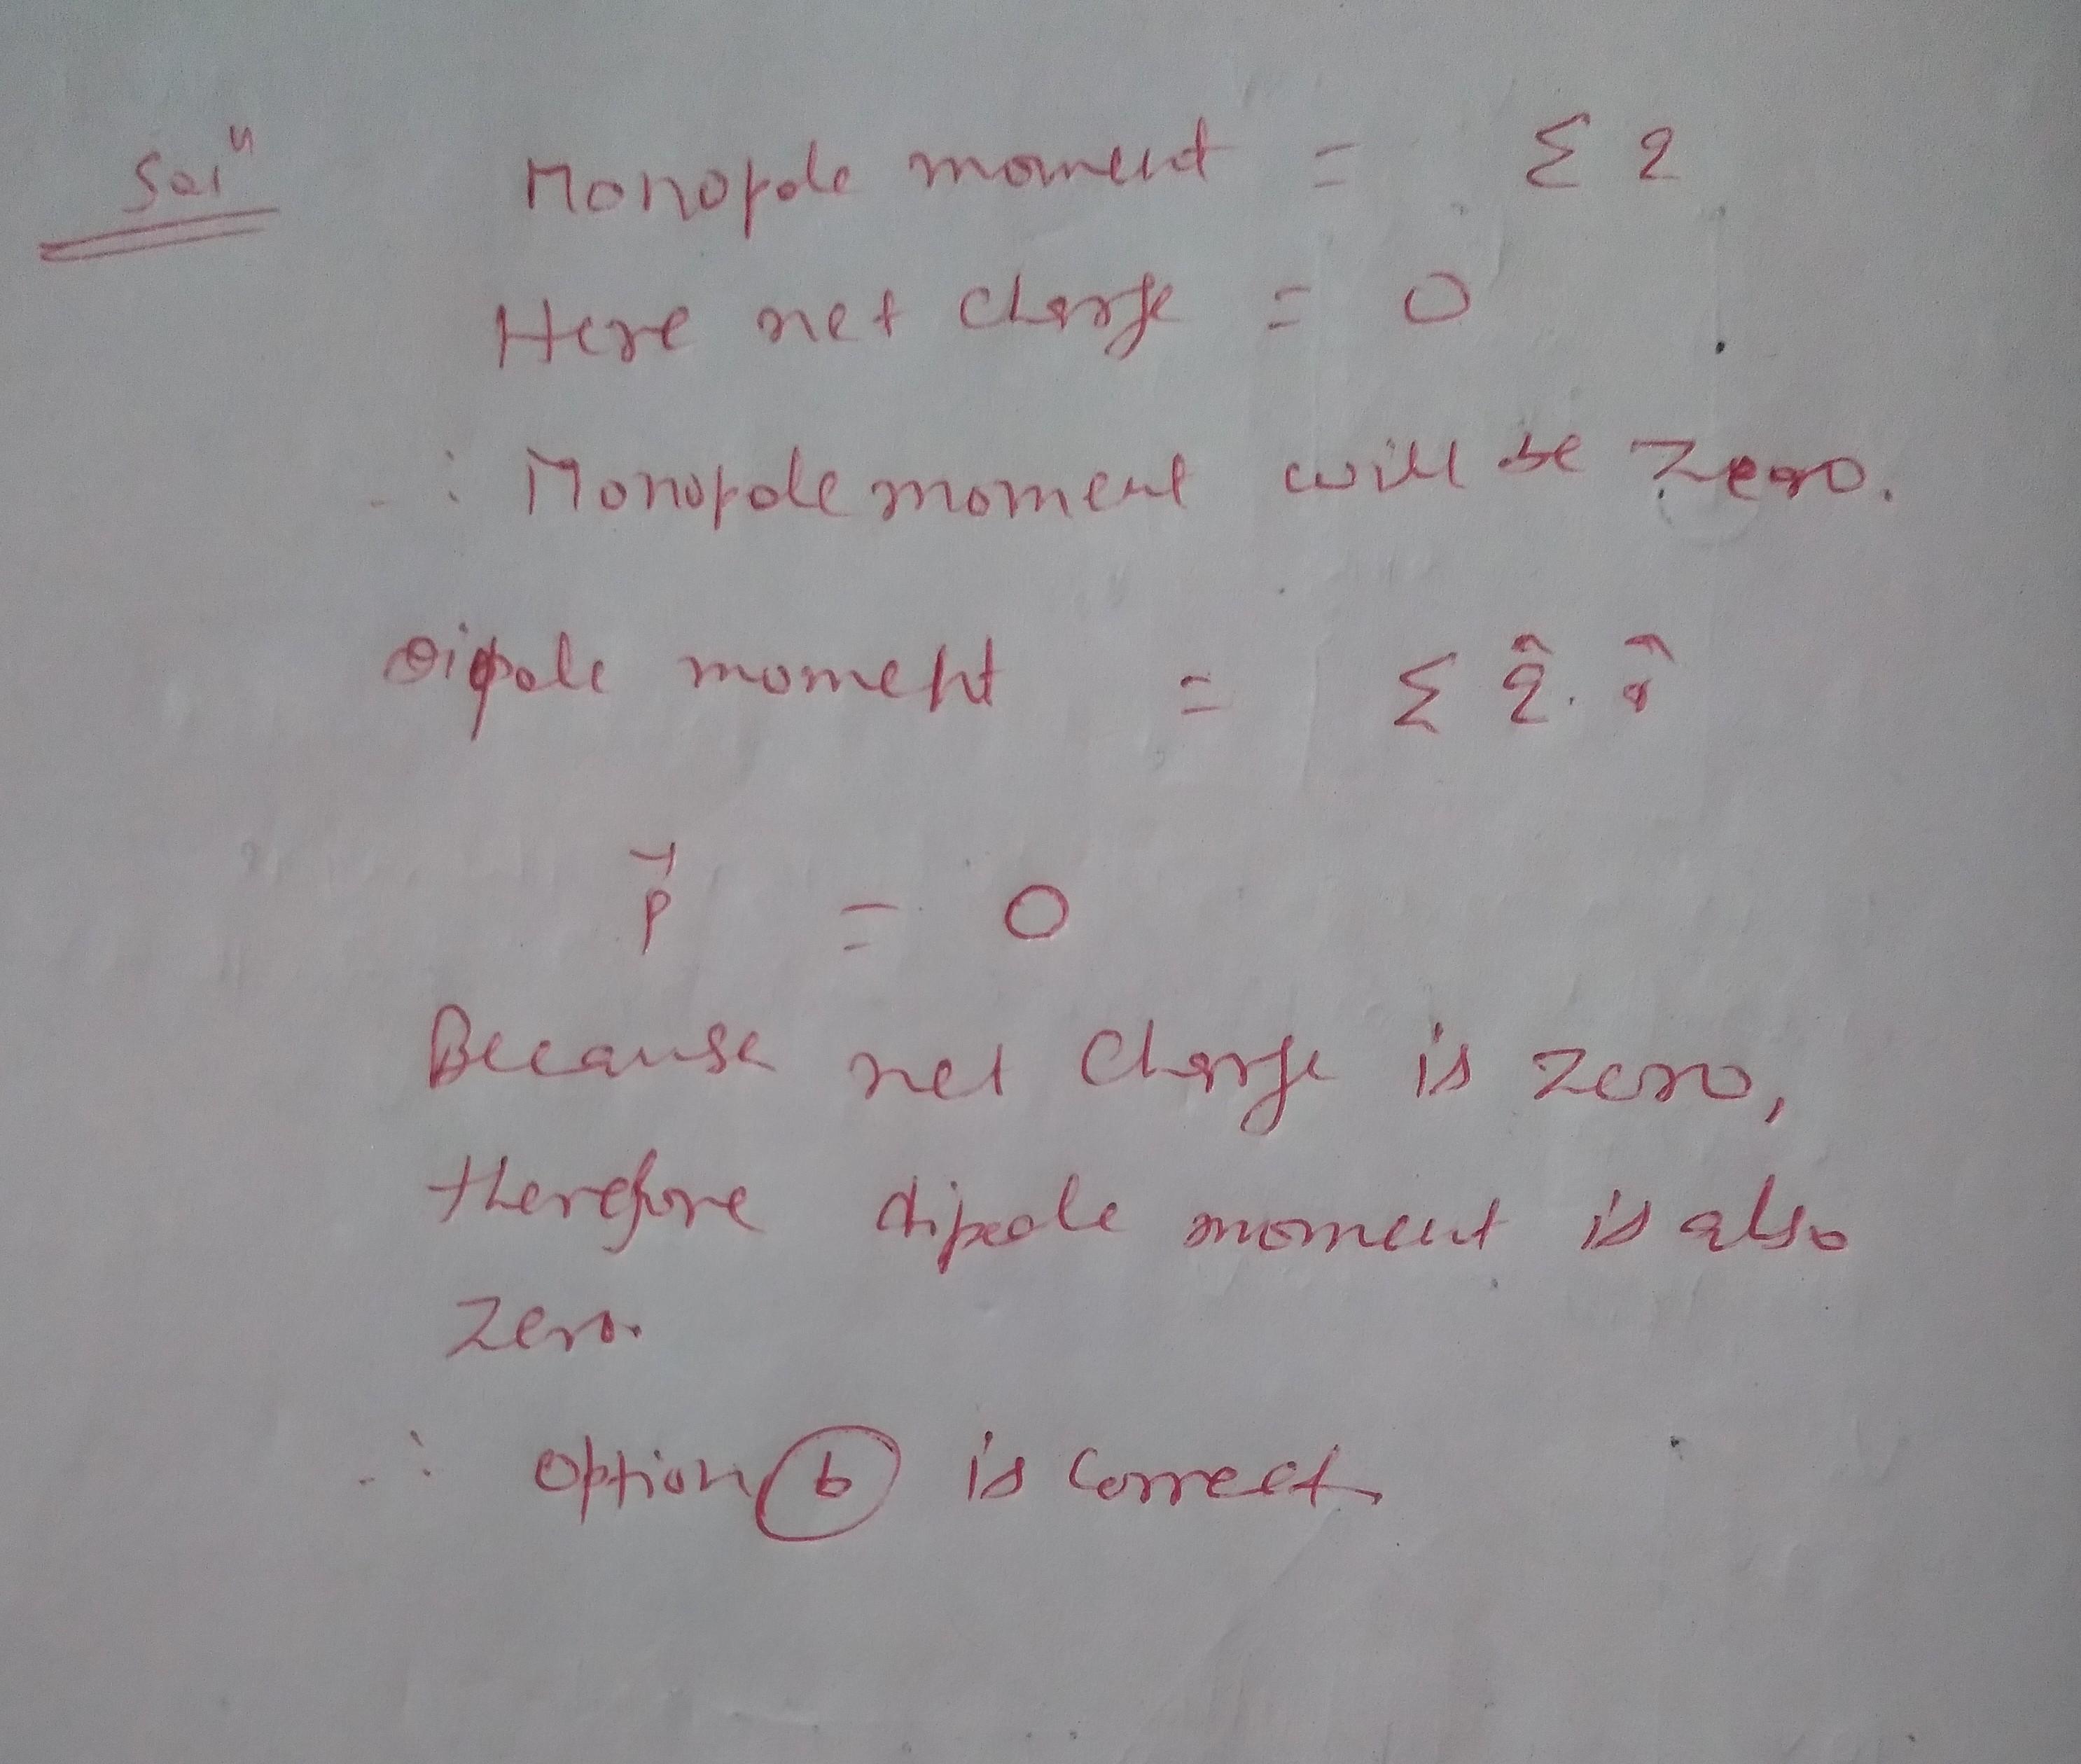 Solⁿ Monopole moment = Σ q
Here net charge = 0
∴ Monopole moment will be zero.
Dipole moment = Σ q̂. r̂
p⃗ = 0
Because net charge is zero,
therefore dipole moment is also
zero.
∴ option (b) is correct